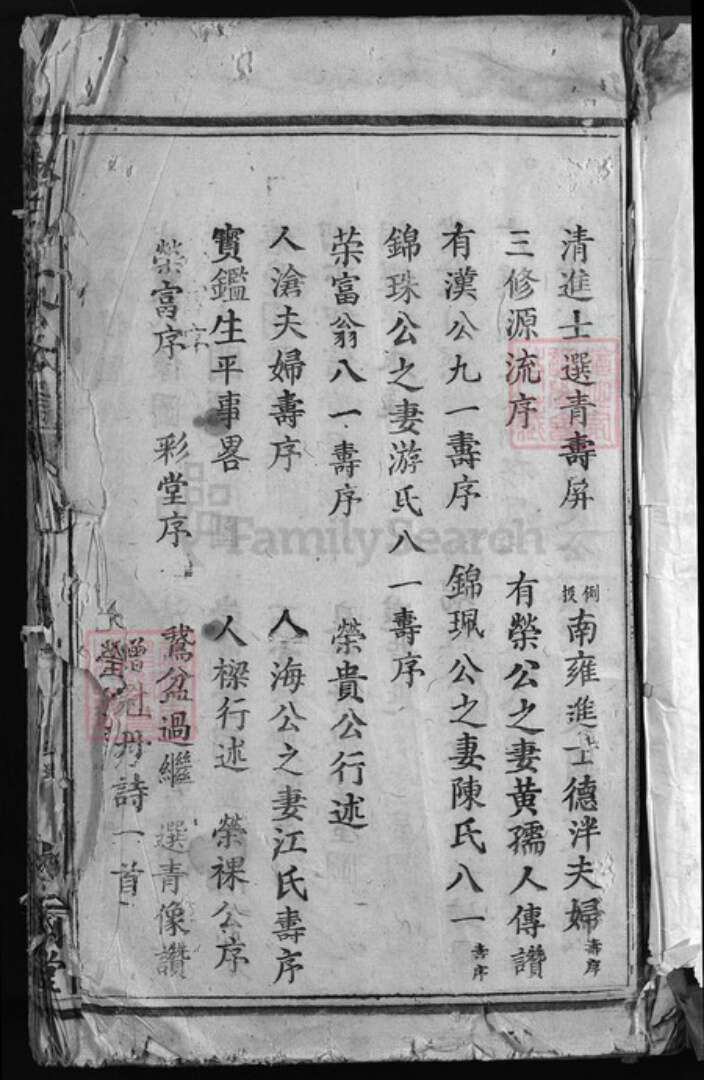 清進士選青壽屏 例授南雍進士德泮夫婦壽序
三修源流序 有榮公之妻黃孺人傳讚
有漢公九一壽序 錦珮公之妻陳氏八一壽序
錦珠公之妻游氏八一壽序
荣富翁八一壽序 榮貴公行述
人滄夫婦壽序 人海公之妻江氏壽序
寳鑑生平事畧 人樑行述 榮祼公序
榮富序 彩堂序 鵞盆過繼 選青像讚
詩一首
FamilySearch